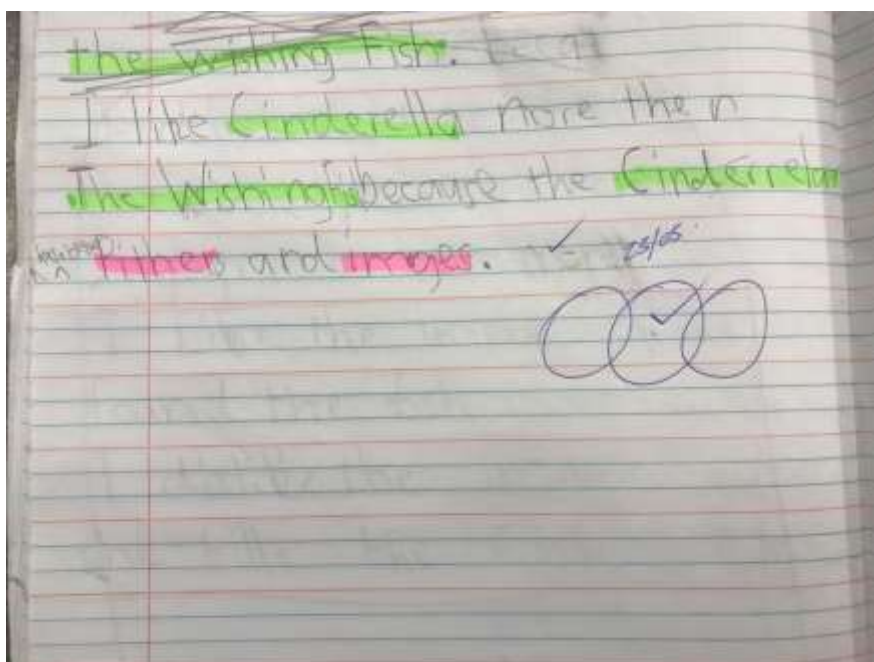 the Wishing Fish.
I like Cinderella more then
The Wishing because the Cinderrela
and images. 23/05